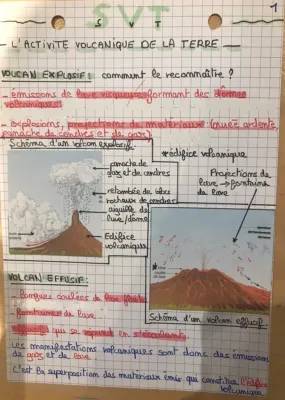 1
SVT
S V T
- L'ACTIVITÉ VOLCANIQUE DE LA TERRE -
VOLCAN EXPLOSIF: comment le reconnaître?
- émissions de lave visqueuse formant des dômes
volcaniques
- explosions, projections de matériaux (nuée ardente,
panache de cendres et de gaz)
Schéma d'un volcan explosif
panache de
gaz et de cendres
retombée de blocs
rocheux de cendres
aiguille de
lave/dôme
Edifice
volcanique
*édifice volcanique
Projections de
lave → fontaine
de lave
Schéma d'un volcan effusif
VOLCAN EFFUSIF:
- Longues coulées de lave fluide
- Fontaines de lave
qui se répand en s'écoulant
Les manifestations volcaniques sont donc des émissions
de gaz et de lave
C'est la superposition des matériaux émis qui constitue l'édifice
volcanique